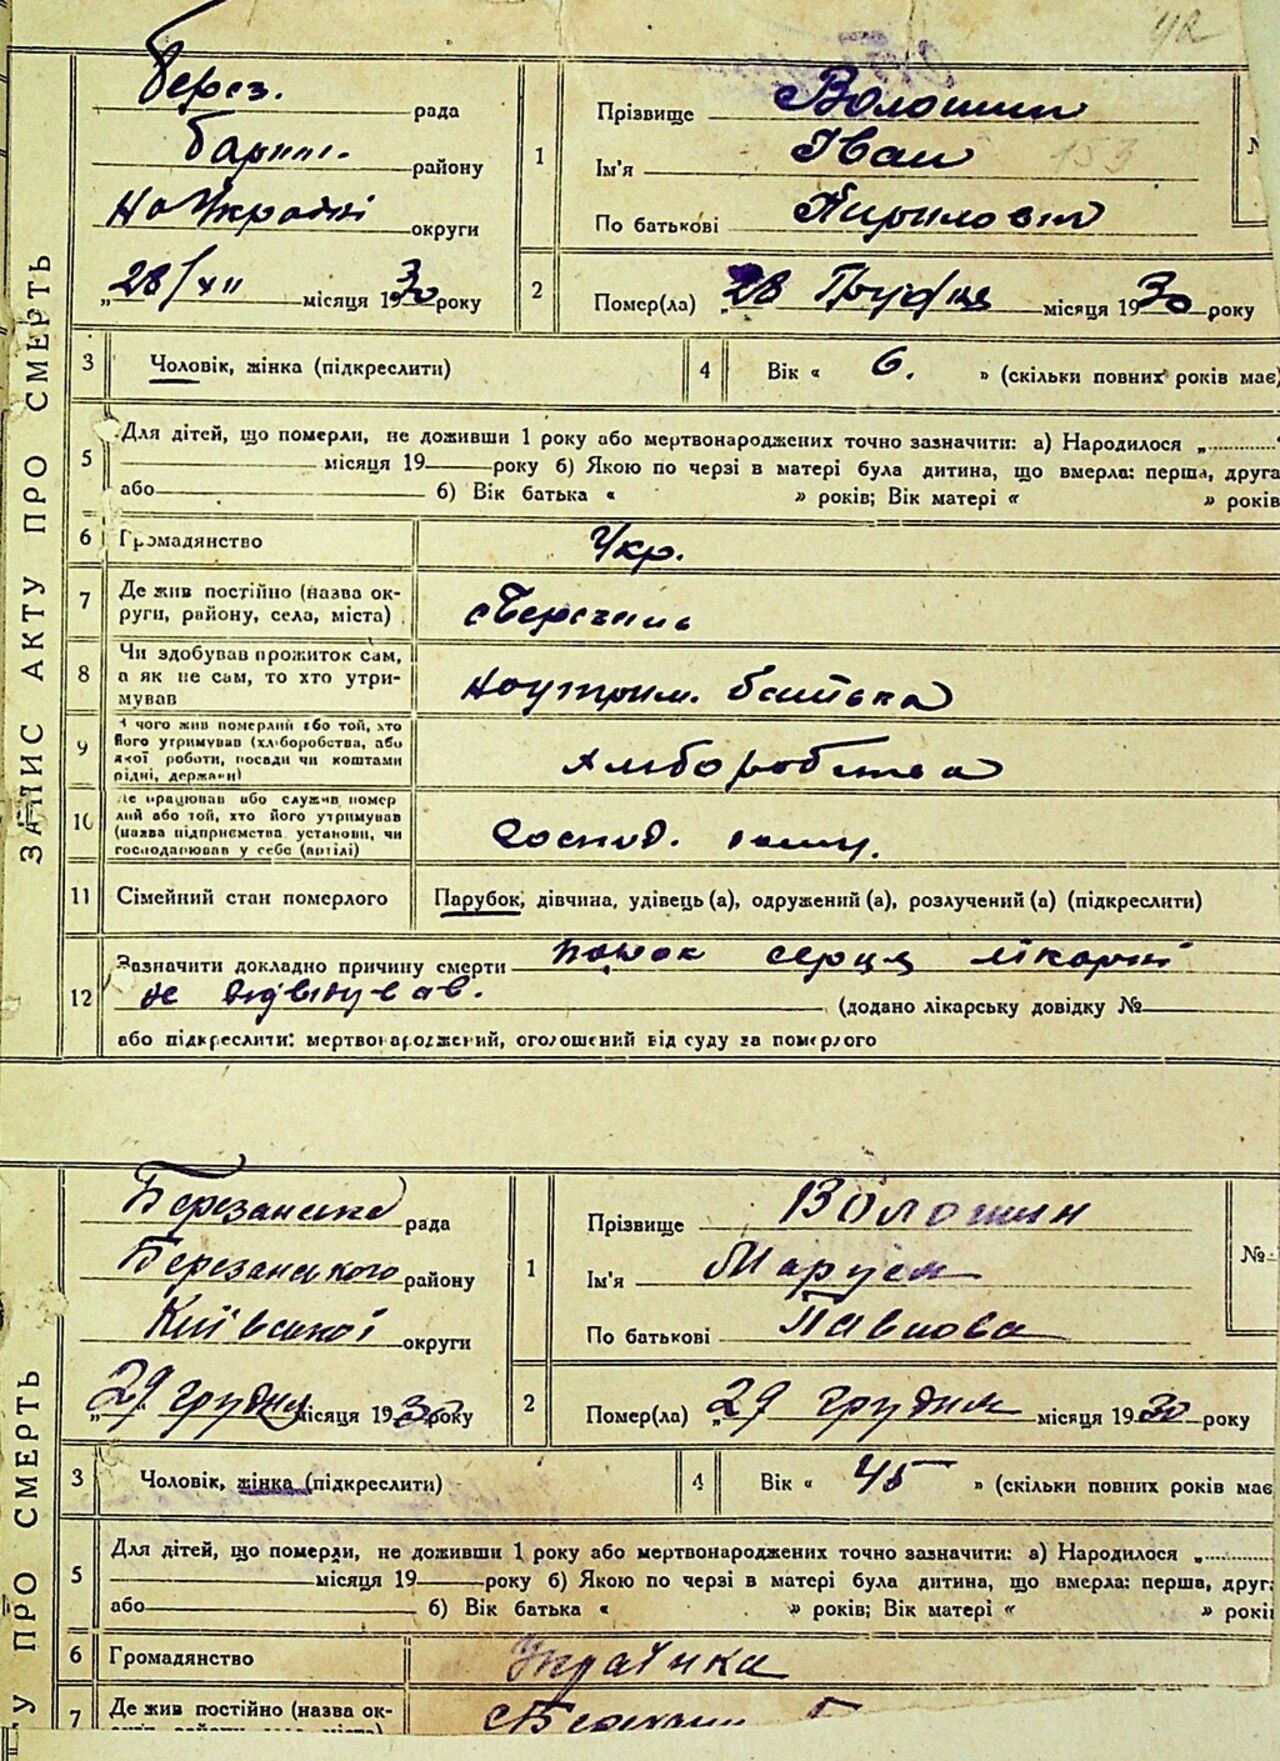 42
ЗАПИС АКТУ ПРО СМЕРТЬ
Берез. рада
Бариш. району
На Україні округи
„28/XII місяця 1930 року
1
Прізвище Волошин
Ім'я Іван
153
По батькові Кирилович
№
2
Помер(ла) „28 Грудня місяця 1930 року
3 Чоловік, жінка (підкреслити)
4 Вік « 6. » (скільки повних років має)
5 Для дітей, що померли, не доживши 1 року або мертвонароджених точно зазначити: а) Народилося „
місяця 19 року б) Якою по черзі в матері була дитина, що вмерла: перша, друга
або б) Вік батька « » років; Вік матері « » років
6 Громадянство Укр.
7 Де жив постійно (назва ок-
руги, району, села, міста)
с Березань
8 Чи здобував прожиток сам,
а як не сам, то хто утри-
мував
На утрим. батька
9 З чого жив померлий або той, хто
його утримував (хліборобства, або
якої роботи, посади чи коштами
рідні, держави)
Хліборобства
10 Де працював або служив помер
лий або той, хто його утримував
(назва підприємства установи, чи
господарював у себе (артілі)
Господ.
11 Сімейний стан померлого Парубок, дівчина, удівець (а), одружений (а), розлучений (а) (підкреслити)
12 Зазначити докладно причину смерти порок серця лікарні
не відвідував.
(додано лікарську довідку №
або підкреслити: мертвонароджений, оголошений від суду за померлого
У ПРО СМЕРТЬ
Березанська рада
Березанського району
Київської округи
„29 грудня місяця 1930 року
1
Прізвище Волошин
Ім'я Маруся
По батькові Павлова
№
2
Помер(ла) „29 грудня місяця 1930 року
3 Чоловік, жінка (підкреслити)
4 Вік « 45 » (скільки повних років має
5 Для дітей, що померли, не доживши 1 року або мертвонароджених точно зазначити: а) Народилося „
місяця 19 року б) Якою по черзі в матері була дитина, що вмерла: перша, друг
або б) Вік батька « » років; Вік матері « » рокі
6 Громадянство Українка
7 Де жив постійно (назва ок-
с Березань